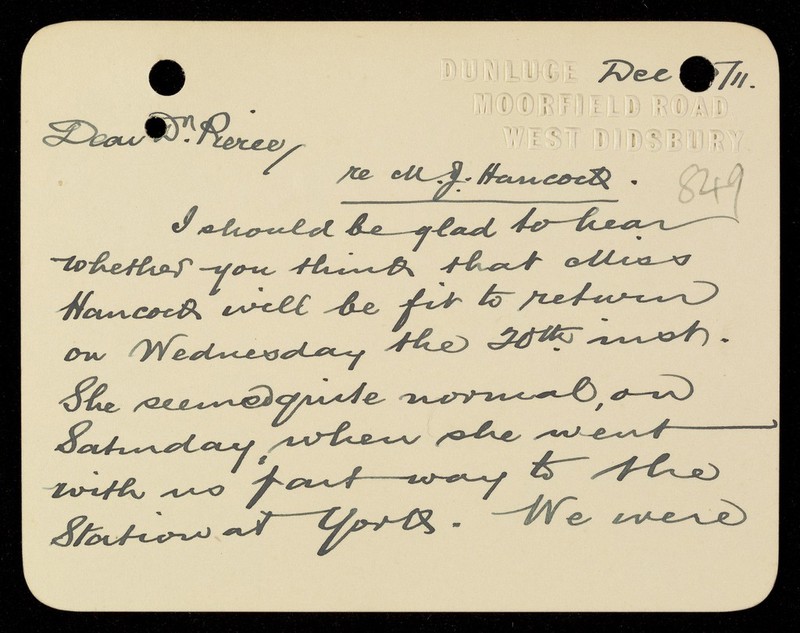 DUNLUCE
MOORFIELD ROAD
WEST DIDSBURY
Dec /11.
Dear Dr. Pierce,
re M. J. Hancock.
849
I should be glad to hear
whether you think that Miss
Hancock will be fit to return
on Wednesday the 20th inst.
She seemed quite normal, on
Saturday, when she went
with us part way to the
Station at York. We were